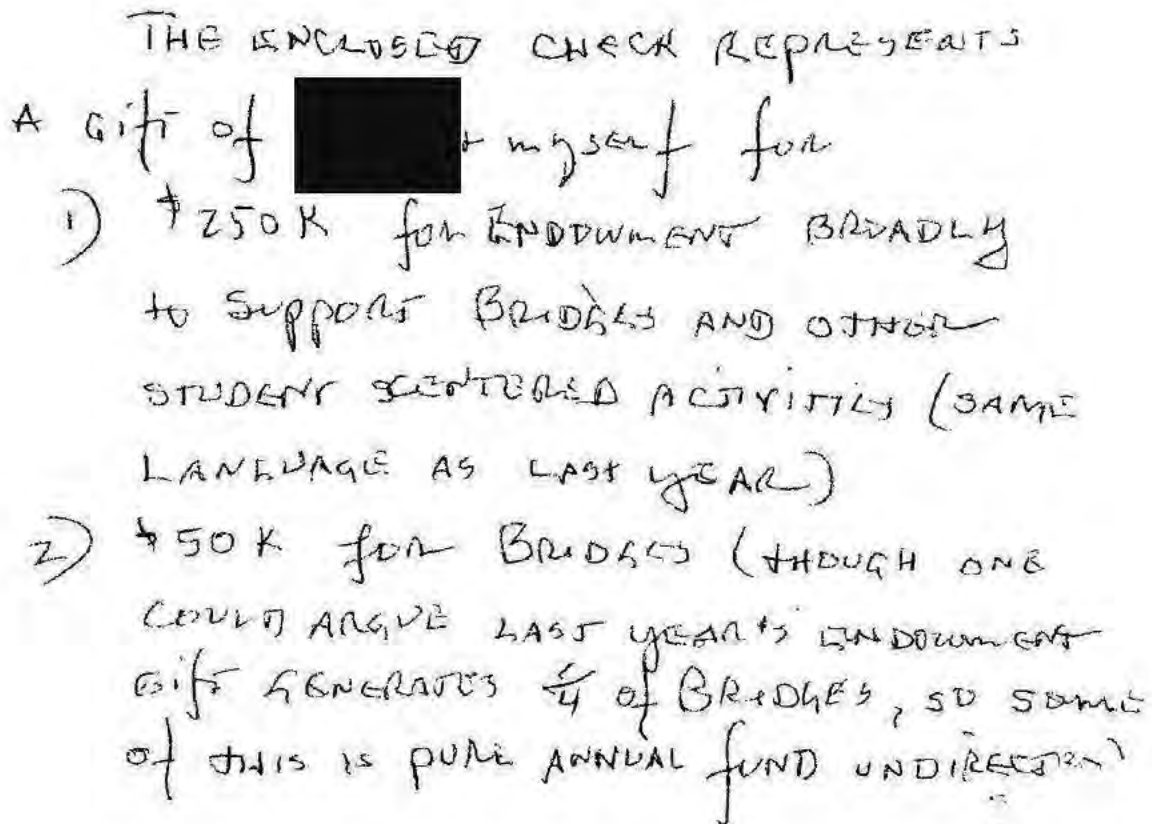 THE ENCLOSED CHECK REPRESENTS
A Gift of + myself for
1) $250K for ENDOWMENT BROADLY
to SUPPORT BRIDGES AND OTHER
STUDENT CENTERED ACTIVITIES (SAME
LANGUAGE AS LAST YEAR)
2) $50K for BRIDGES (THOUGH ONE
COULD ARGUE LAST YEAR'S ENDOWMENT
Gift GENERATES of BRIDGES, SO SOME
of THIS IS PURE ANNUAL fUND